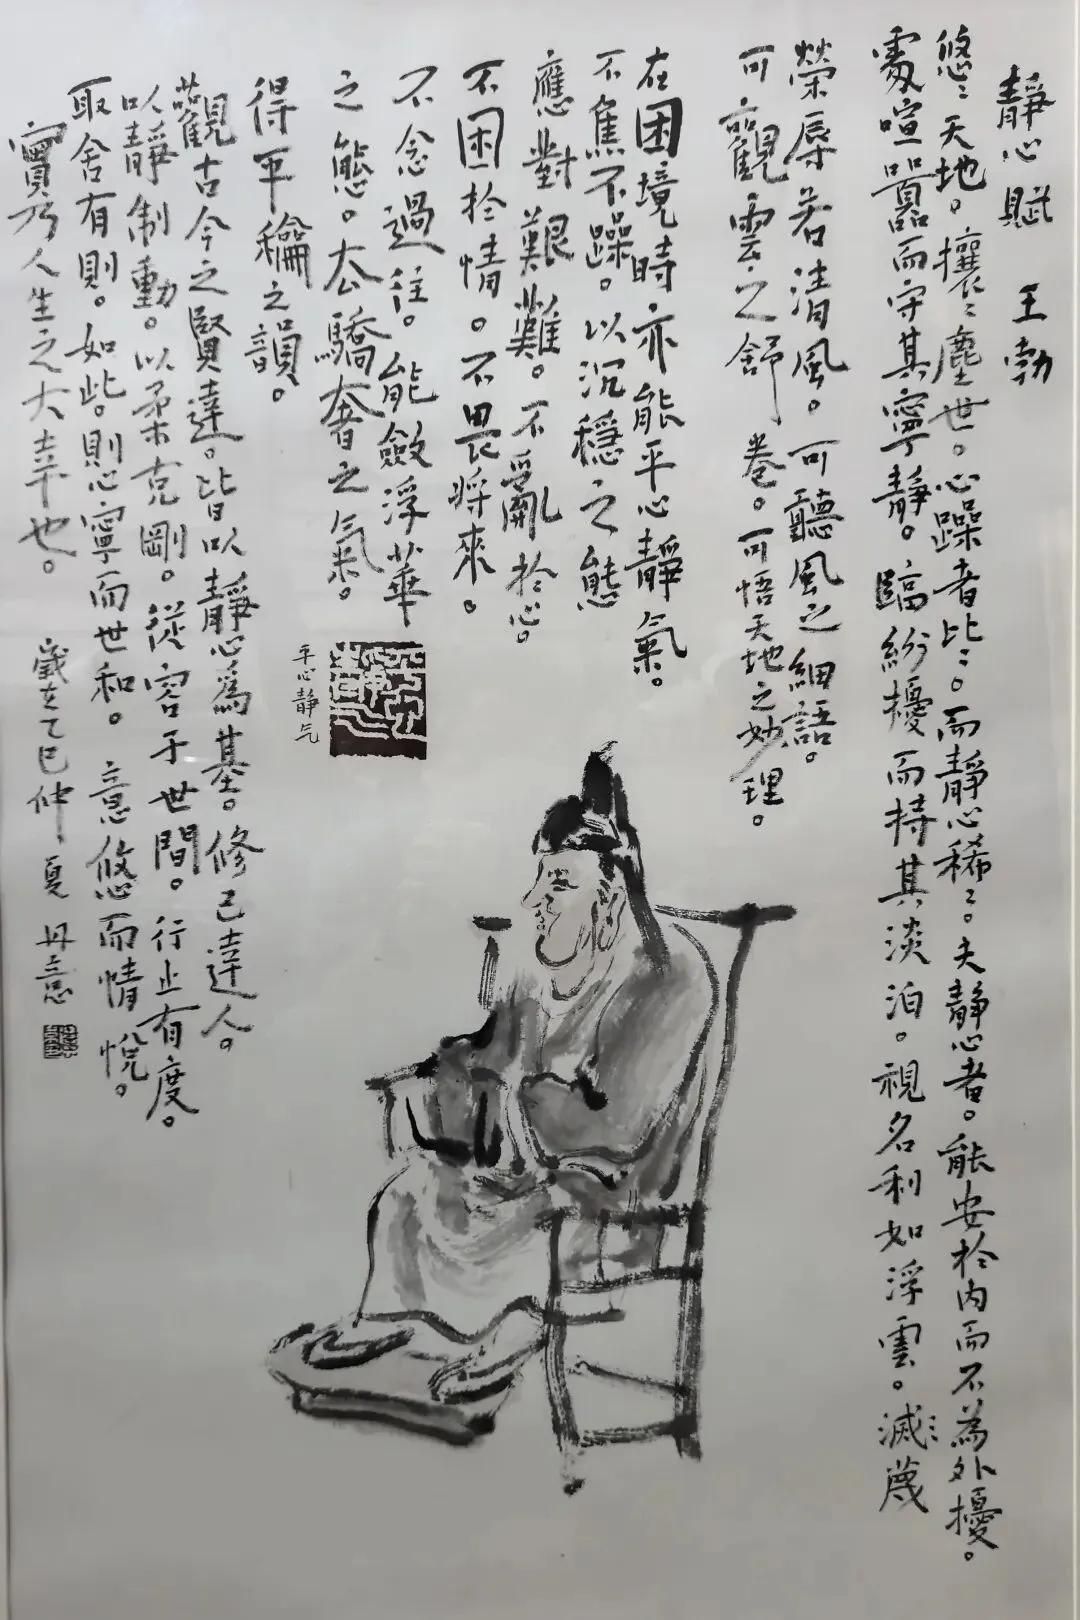 靜心賦 王勃
悠〻天地。攘〻塵世。心躁者比〻。而靜心稀〻。夫靜心者。能安於内而不為外擾。
處喧囂而守其寧靜。臨紛擾而持其淡泊。視名利如浮雲。滅〻蔑
榮辱若清風。可聽風之細語。
可觀雲之舒卷。可悟天地之妙理。
在困境時亦能平心靜氣。
不焦不躁。以沉穩之態
應對艱難。不亂於心。
不困於情。不畏將來。
不念過往。能斂浮華
之態。去驕奢之氣。
得平龢之韻。
觀古今之賢達。皆以靜心爲基。修己達人。
以靜制動。以柔克剛。從容于世間。行止有度。
取舍有則。如此。則心寧而世和。意悠而情悅。
實乃人生之大幸也。 歲在乙巳仲夏 丹意
平心静气